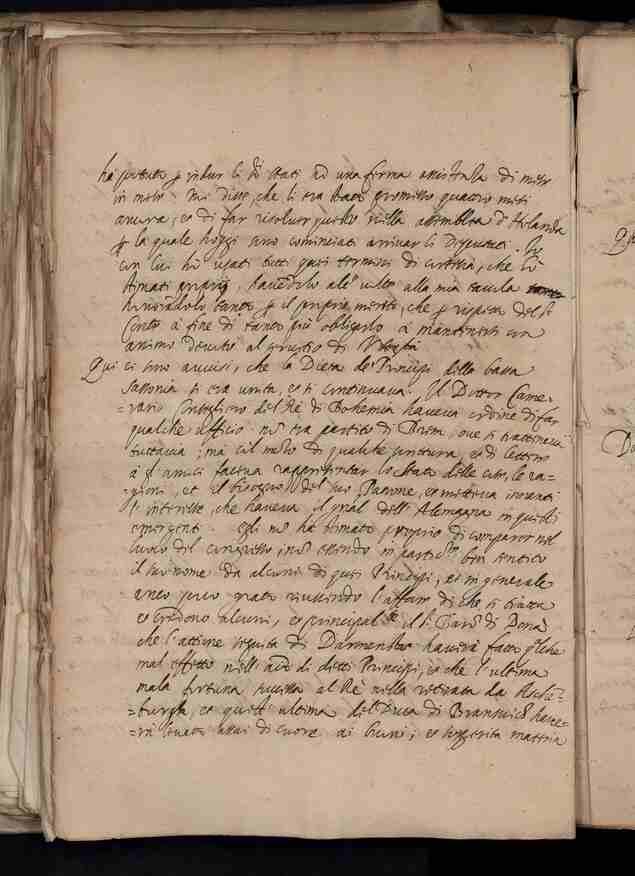 ha potuto p ridur li ss.ri stati ad una ferma assistenza di mese
in mese. Mi disse, che li era stato promesso quattro mesi
ancora, et di far risolver questo nella assemblea d'Holanda
p la quale hoggi sono cominciati arrivar li Deputati. Io
con lui hò usati tutti quei termini di cortesia, che hò
stimati proprij, havendolo
honorandolo tanto p il proprio merito, che p rispetto del s.r
Conte à fine di tanto più obligarlo à mantenersi con
animo devoto al servitio di V. Ser.tà
Qui ci sono avvisi, che la Dieta de Principi della bassa
Sassonia si era unita, et si continuava. Il Dottor Came-
=rario Consigliero del Rè di Bohemia haveva ordine di far
qualche ufficio. nõ era partito di Brem, ove si tratteneva
tuttavia; ma col mezo di qualche scrittura, et di lettere
à gl'amici faceva rappresentar lo stato delle cose, le ra-
=gioni, et il bisogno del suo Patrone, et metteva inanti
l'interesse, che haveva il g.nal dell'Alemagna in questi
emergenti. egli nõ ha stimato proprio di comparer nel
luoco del congresso nõ essendo in partic.re ben sentito
il suo nome da alcuni di quei Principi, et in generale
anco poco grato riuscendo l'affare di che si tratta
et credono alcuni, et principal.te il s.r Baron di Dona
che l'attione seguita di Darmenstat haverà fatto q.lche
mal effetto nell'aĩo di detti Principi, et che l'ultima
mala fortuna successa al Rè nella retirata da
=burgh, et quest'ultima del Duca di Branswich have-
=rà levato assai di cuore ai buoni; et suggerita materia